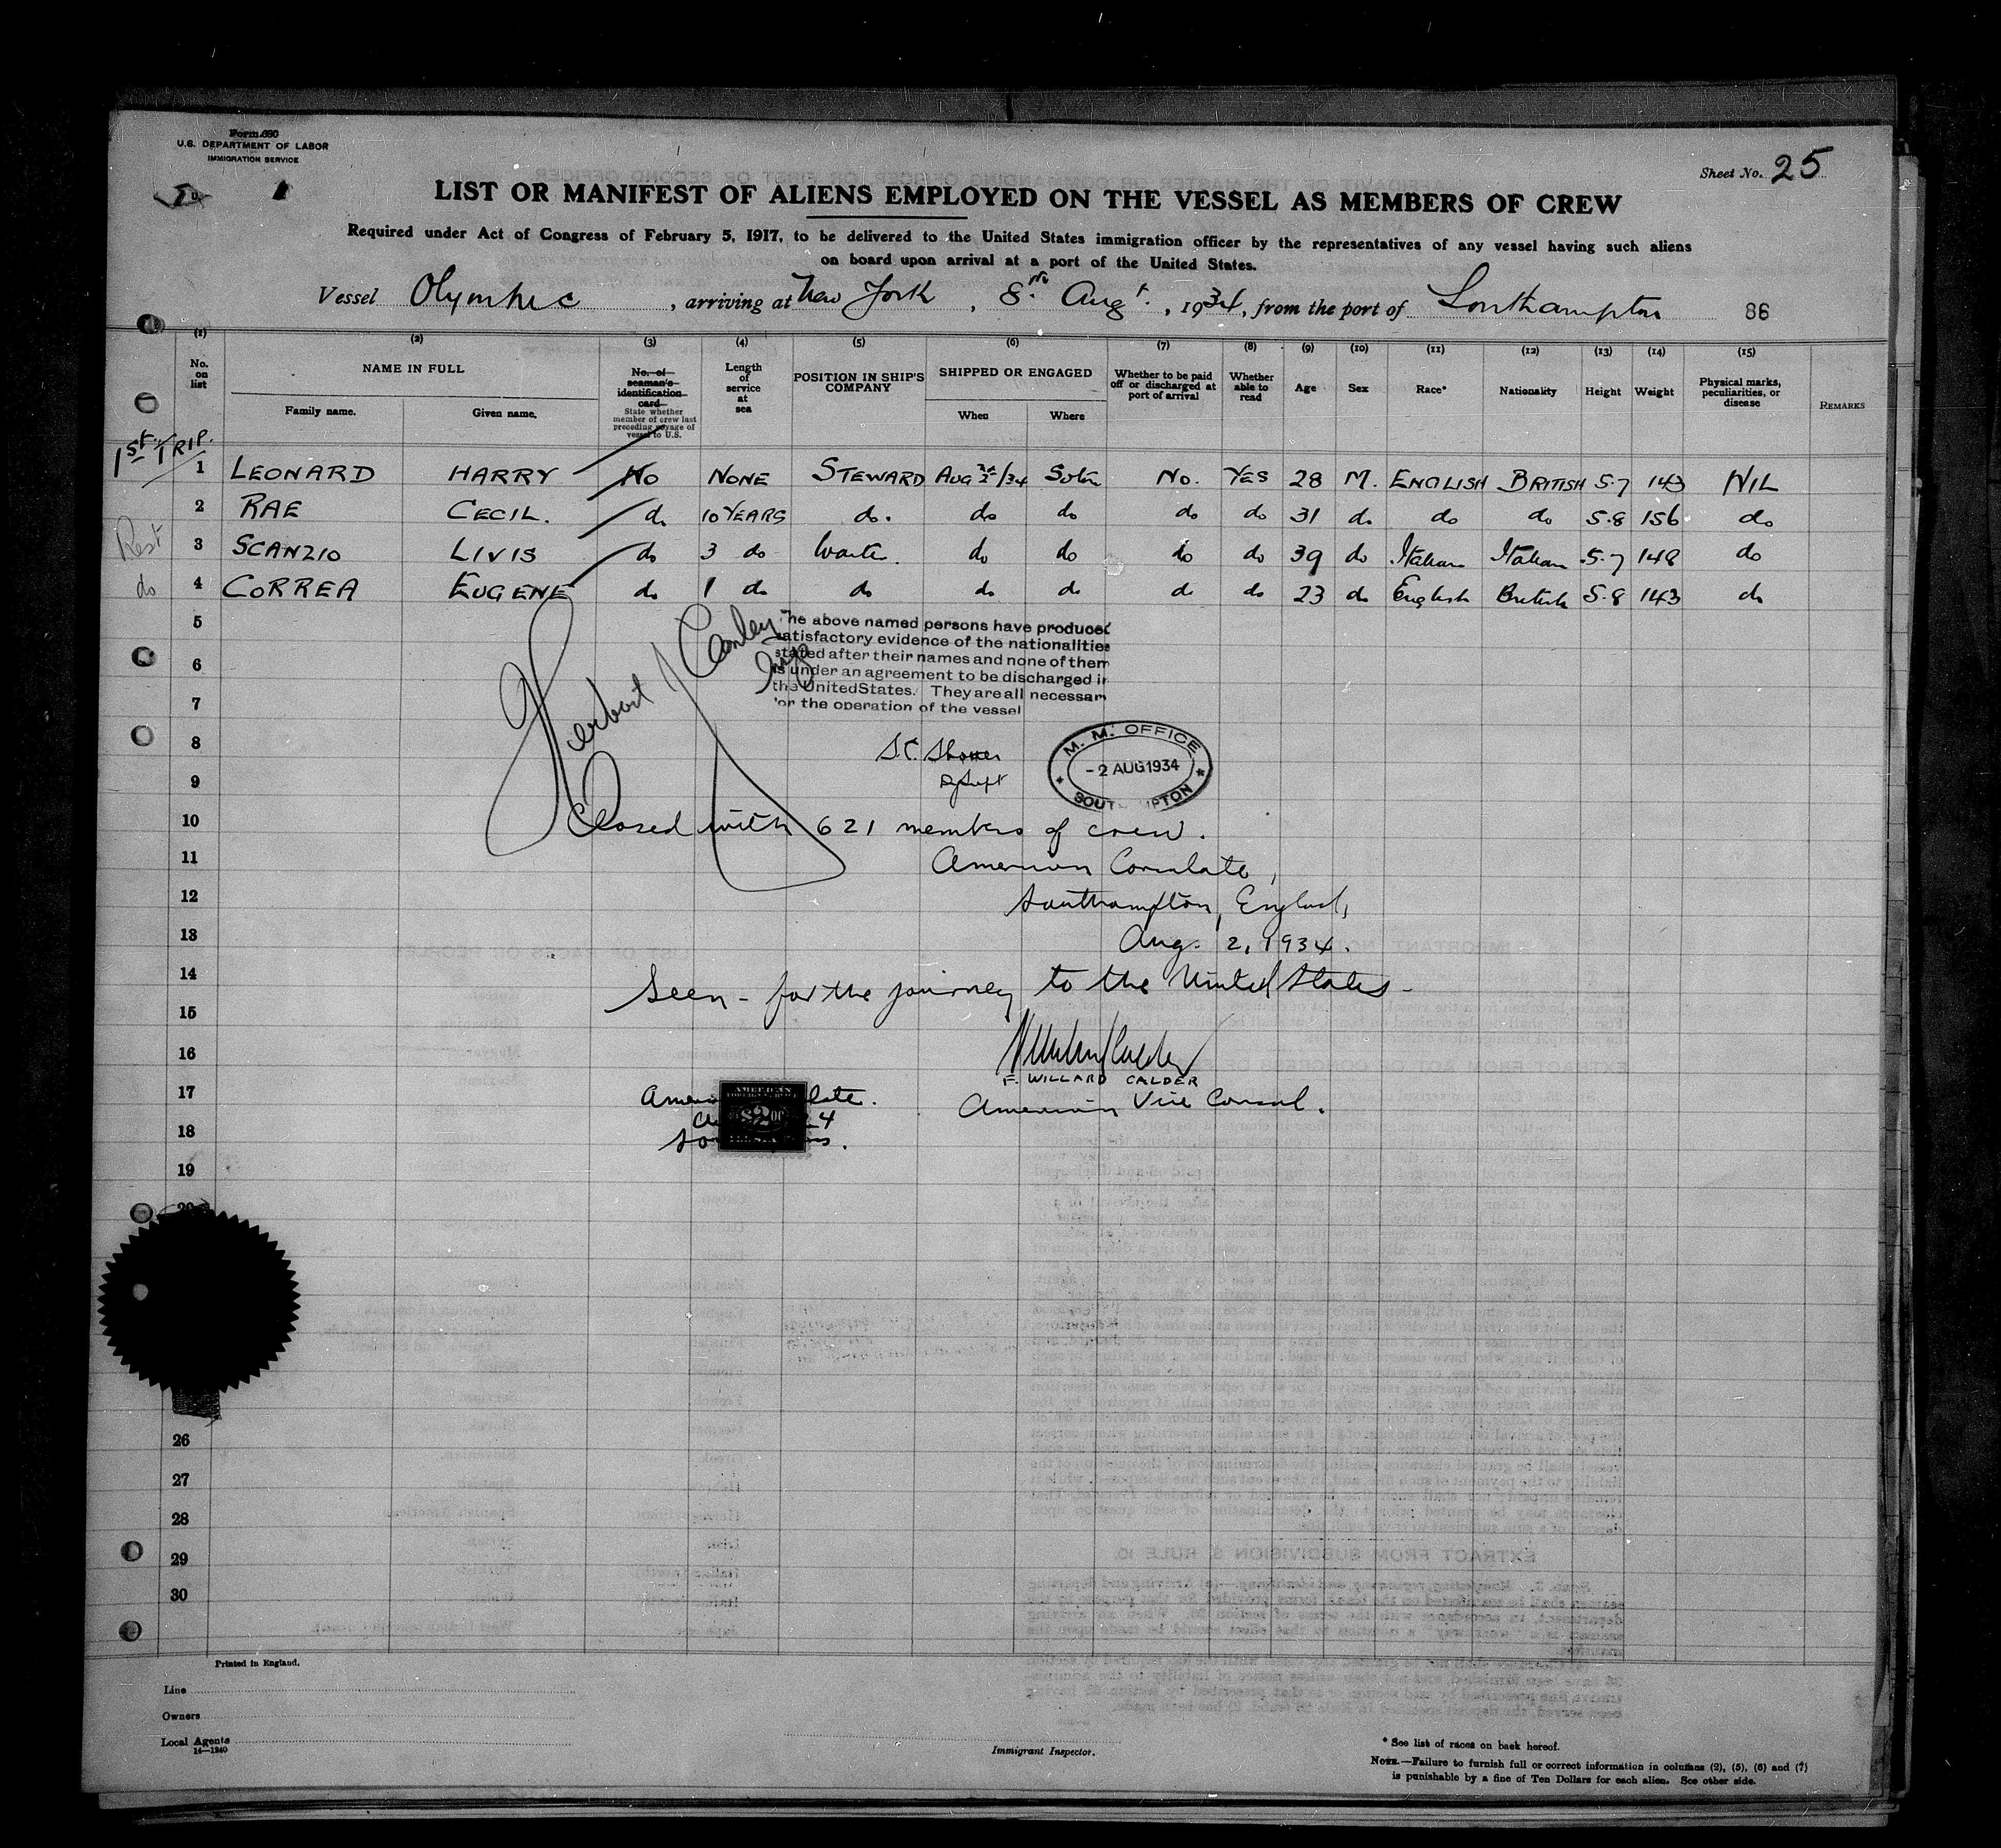 Form 680
U.S. DEPARTMENT OF LABOR
IMMIGRATION SERVICE
Sheet No. 25
LIST OR MANIFEST OF ALIENS EMPLOYED ON THE VESSEL AS MEMBERS OF CREW
Required under Act of Congress of February 5, 1917, to be delivered to the United States immigration officer by the representatives of any vessel having such aliens
on board upon arrival at a port of the United States.
Vessel Olympic, arriving at New York, 8th Augt., 1934, from the port of Southampton 86
(1) (2) (3) (4) (5) (6) (7) (8) (9) (10) (11) (12) (13) (14) (15)
No. on list
NAME IN FULL
Family name. Given name.
No. of seaman's identification card
State whether member of crew last preceding voyage of vessel to U.S.
Length of service at sea
POSITION IN SHIP'S COMPANY
SHIPPED OR ENGAGED
When Where
Whether to be paid off or discharged at port of arrival
Whether able to read
Age
Sex
Race*
Nationality
Height
Weight
Physical marks, peculiarities, or disease
REMARKS
1st TRIP.
1 LEONARD HARRY No NONE STEWARD AUG 2nd/34 Soton No. YES 28 M. ENGLISH BRITISH 5.7 143 NIL
2 RAE CECIL. do 10 YEARS do. do do do do 31 do do do 5.8 156 do
Rest 3 SCANZIO LIVIS do 3 do Waiter. do do do do 39 do Italian Italian 5.7 148 do
do 4 CORREA EUGENE do 1 do do do do do do 23 do English British 5.8 143 do
5
6
7
8
9
10
11
12
13
14
15
16
17
18
19
20
26
27
28
29
30
Herbert J Conley
Insp
The above named persons have produced
satisfactory evidence of the nationalities
stated after their names and none of them
is under an agreement to be discharged in
the United States. They are all necessary
for the operation of the vessel
M. M. OFFICE
-2 AUG 1934
SOUTHAMPTON
Closed with 621 members of crew.
American Consulate,
Southampton, England,
Aug. 2, 1934.
Seen - for the journey to the United States -
F. WILLARD CALDER
American Vice Consul.
$2.00
Printed in England.
Line
Owners
Local Agents
14—1240
Immigrant Inspector.
* See list of races on back hereof.
NOTE.—Failure to furnish full or correct information in columns (2), (5), (6) and (7)
is punishable by a fine of Ten Dollars for each alien. See other side.